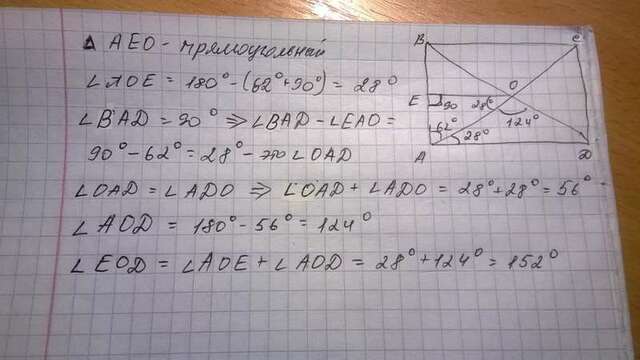 Δ AEO - прямоугольный
∠AOE = 180° - (62° + 90°) = 28°
∠BAD = 90° ⇒ ∠BAD - ∠EAO =
90° - 62° = 28° - это ∠OAD
∠OAD = ∠ADO ⇒ ∠OAD + ∠ADO = 28° + 28° = 56°
∠AOD = 180° - 56° = 124°
∠EOD = ∠AOE + ∠AOD = 28° + 124° = 152°
B
C
O
E
90
28°
124°
62°
28°
A
D